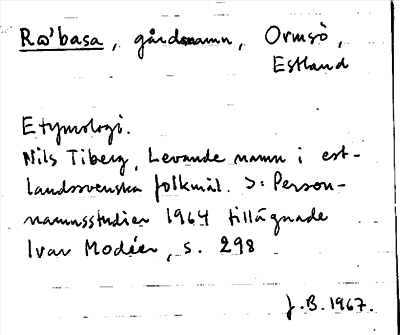 Rω'basa, gårdsnamn, Ormsö,
Estland
Etymologi.
Nils Tiberg, Levande namn i est-
landssvenska folkmål. I: Person-
namnsstudier 1964 tillägnade
Ivar Modéer, s. 298
J.B. 1967.